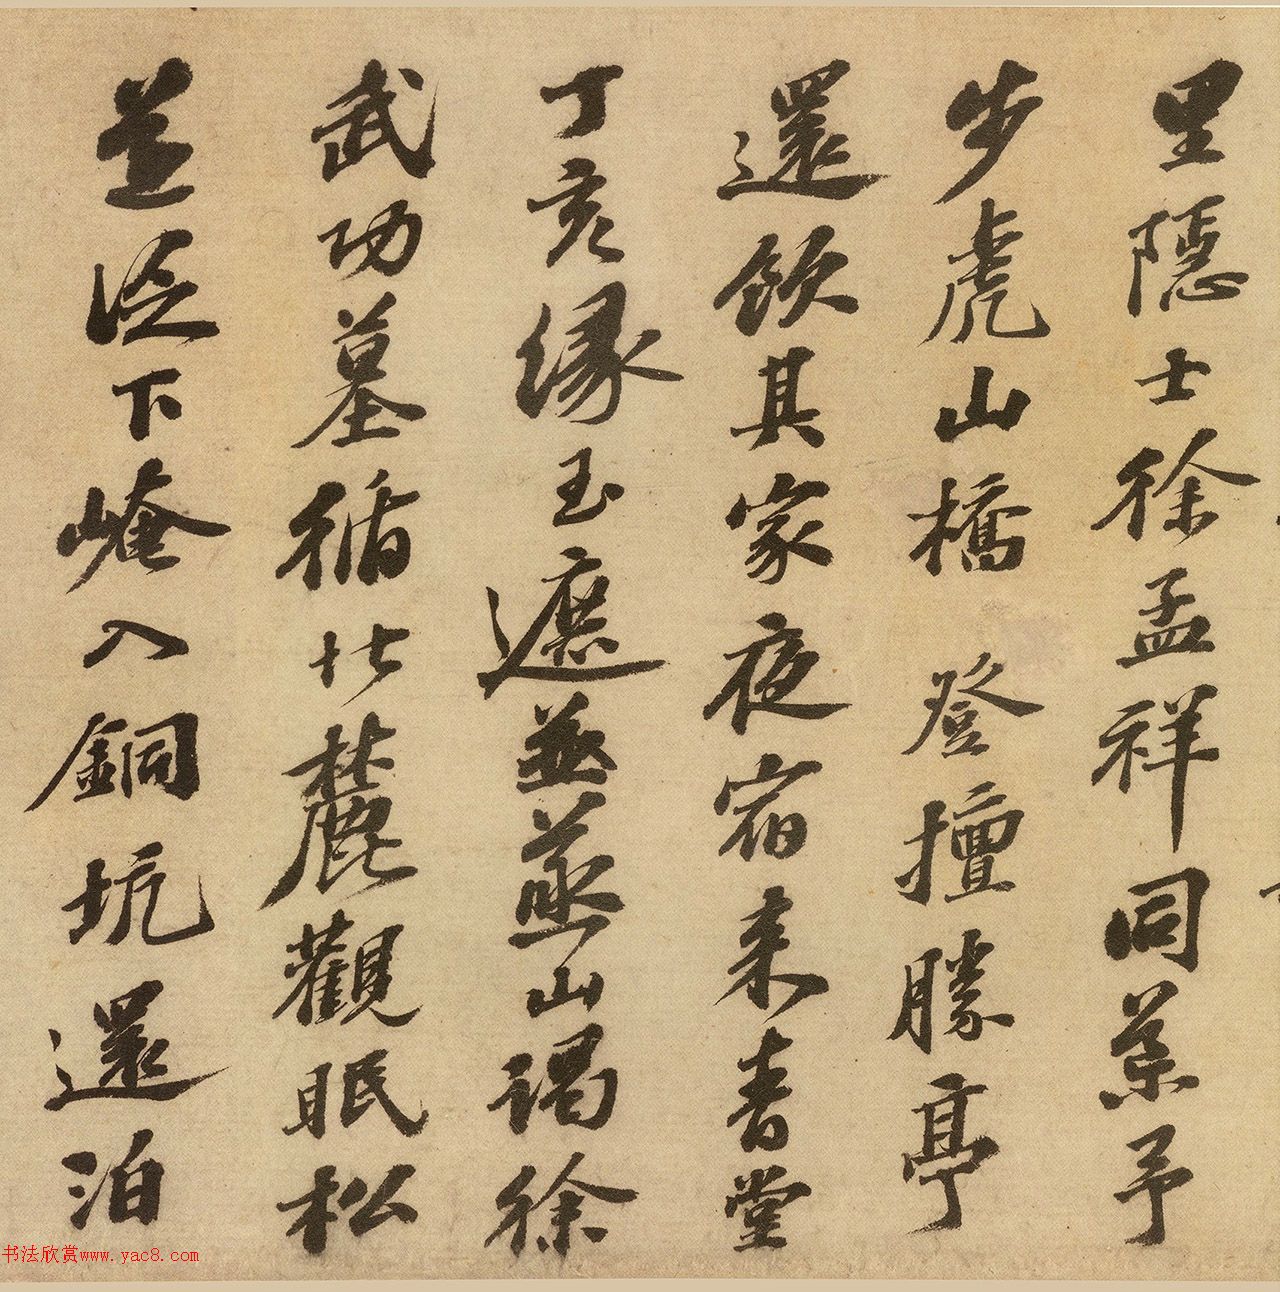 里隱士徐孟祥同葉予
步虎山橋登擅勝亭
還飲其家夜宿来青堂
丁亥緣玉遮並蒸山謁徐
武功墓循北麓觀眠松
道泛下崦入銅坑還泊
书法欣赏www.yac8.com